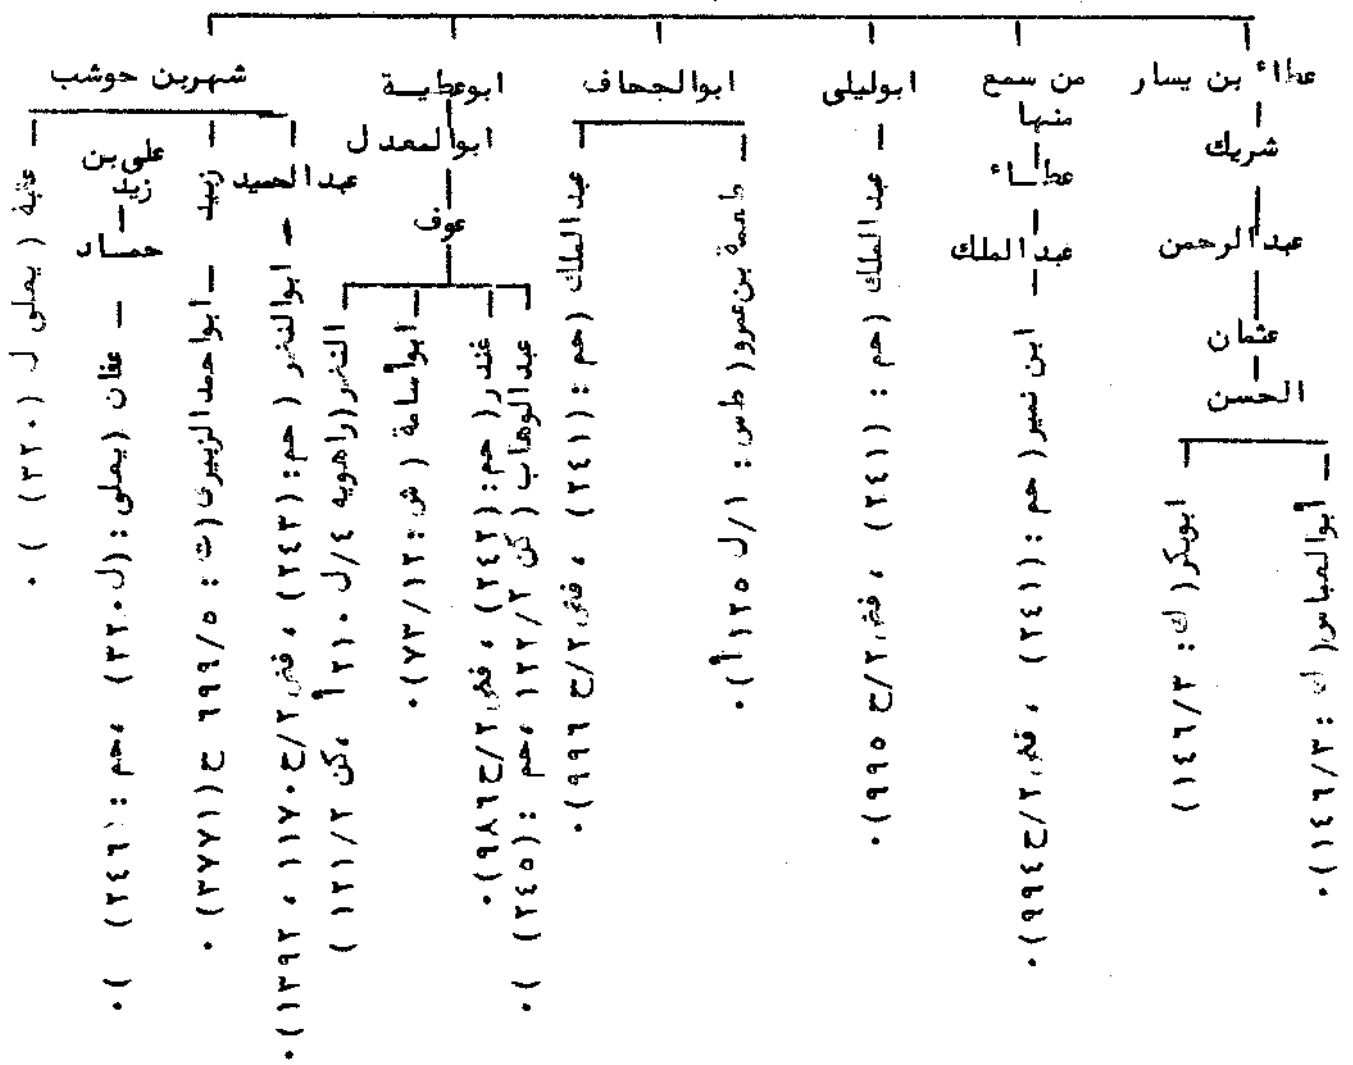 عطاء بن يسار
شريك
عبد الرحمن
عثمان
الحسن
أبوالعباس (ك : ١٤٦/٣) .
ابوبكر (ك : ١٤٦/٣)
من سمع
منها
عطاء
عبد الملك
ابن نمير (حم : (٢٤١) ، فض ٢/ح ٩٩٤) .
ابوليلى
عبد الملك (حم : (٢٤١) ، فض ٢/ح ٩٩٥) .
ابوالجحاف
طعمة بن عمرو (طس : ١/ل ١٢٥ أ) .
عبد الملك (حم : (٢٤١) ، فض ٢/ح ٩٩٦) .
ابوعطيــة
ابوالمعدل
عوف
عبد الوهاب (كن ١٢٢/٢ ، حم : (٢٤٥) ) .
غندر (حم : (٢٤٢) ، فض ٢/ح ٩٨٦) .
ابوأسامة (ش : ٧٣/١٢) .
النضر (راهويه ٤/ل ٢١٠ أ ، كن ١٢١/٢ )
شهربن حوشب
عبد الحميد
ابوالنضر (حم : (٢٤٣) ، فض ٢/ح ١١٧٠ ، ١٣٩٢) .
زبيد
ابواحمد الزبيرى (ت : ٦٩٩/٥ ح (٣٧٧١) .
على بن
زيد
حمــاد
عفان (يعلى : (ل ٣٢٠) ، حم : (٢٤٦) ) .
عقبة (يعلى ل (٣٢٠) ) .